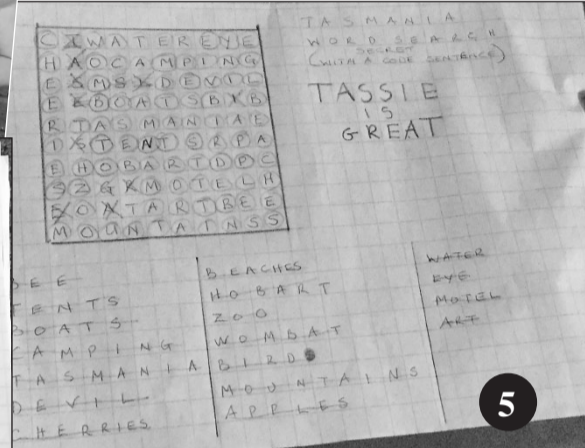 C T W A T E R E Y E
H A O C A M P I N G
E S M S I D E V I L
R E B O A T S B I B
R T A S M A N I A E
I S T E N T S R P A
E H O B A R T D P C
S Z G R M O T E L H
E O A T A R T B E E
M O U N T A I N S S
TASMANIA
WORD SEARCH
SECRET
(WITH A CODE SENTENCE)
TASSIE
IS
GREAT
BEE
TENTS
BOATS
CAMPING
TASMANIA
DEVIL
CHERRIES
BEACHES
HOBART
ZOO
WOMBAT
BIRD
MOUNTAINS
APPLES
WATER
EYE
MOTEL
ART
5